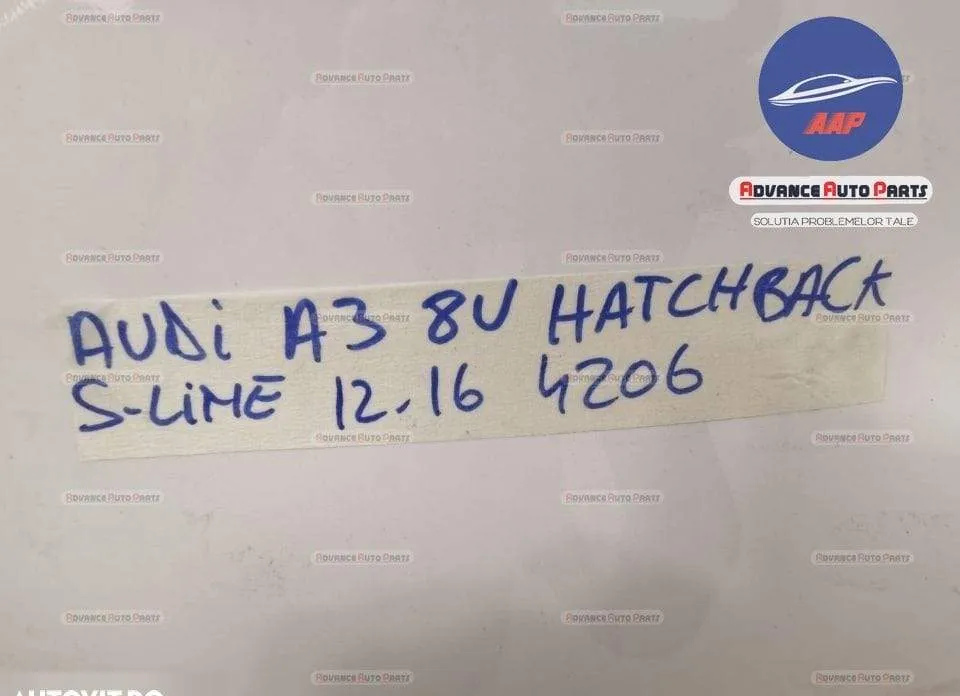 AAP
ADVANCE AUTO PARTS
SOLUTIA PROBLEMELOR TALE
AUDi A3 8V HATCHBACK
S-LiNE 12.16 4206
AUTOVIT.RO